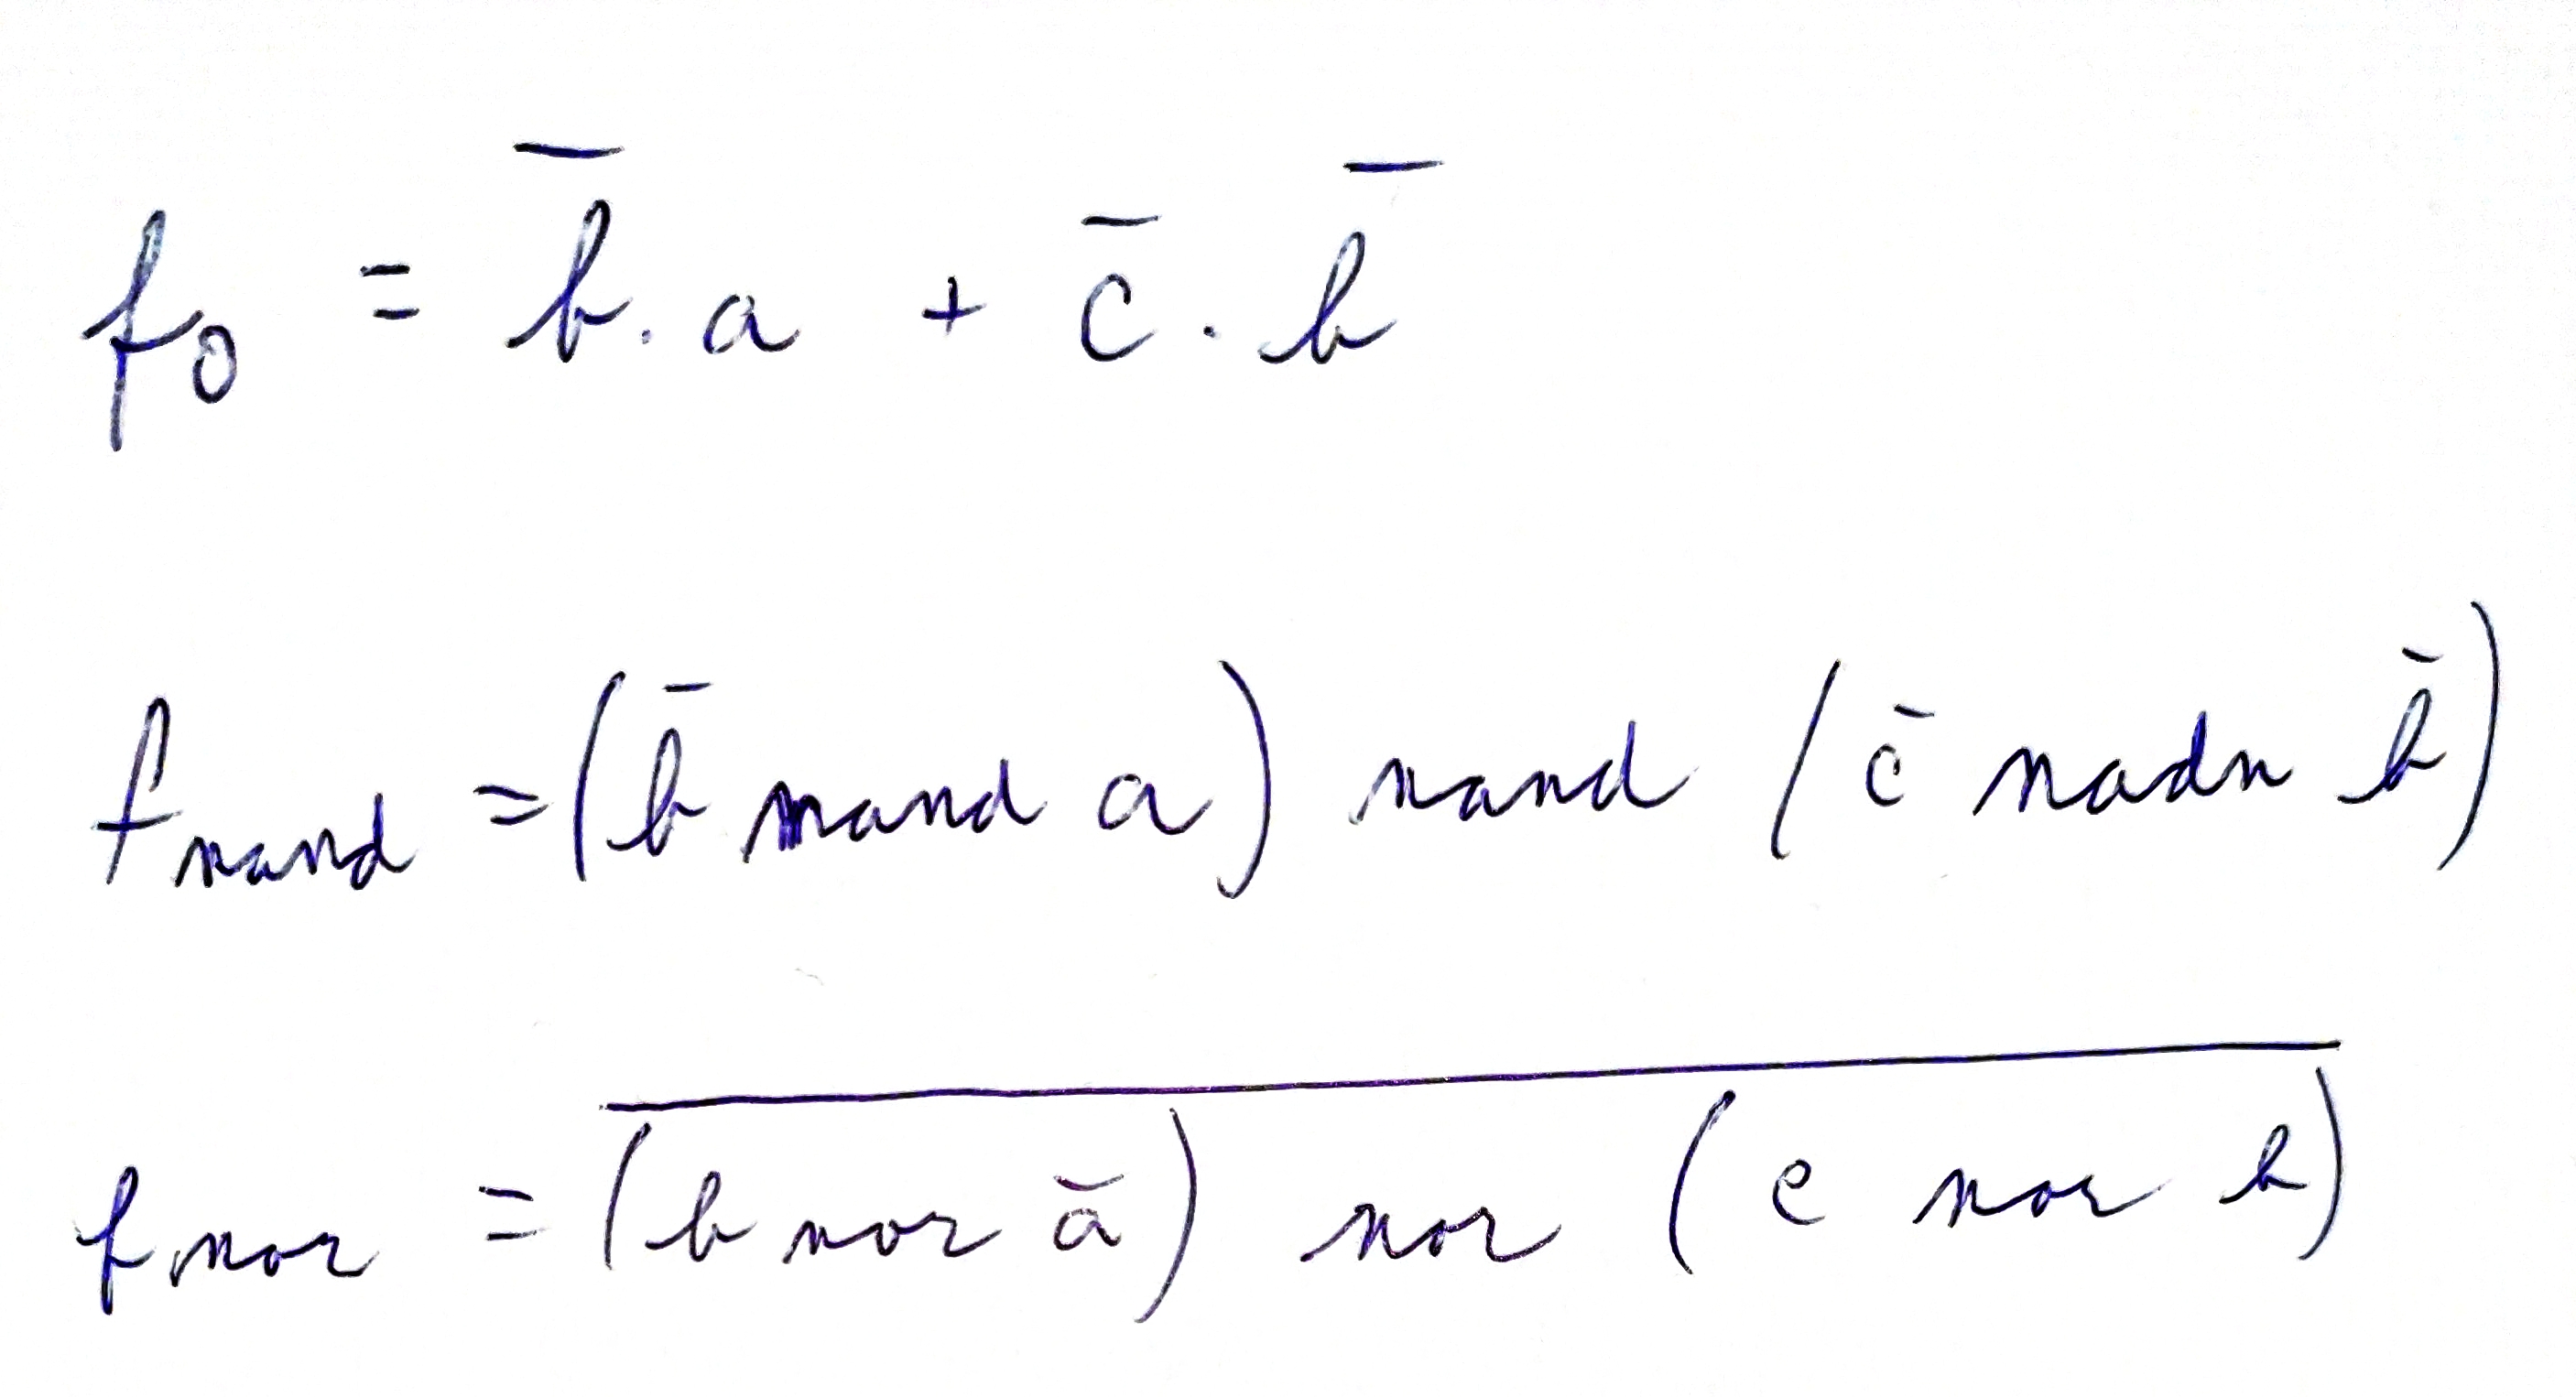 f₀ = b̅ . a + c̅ . b̅
f_nand = (b̅ nand a) nand (c̅ nadn b̅)
f_nor = \overline{(b nor a̅) nor (c nor b)}